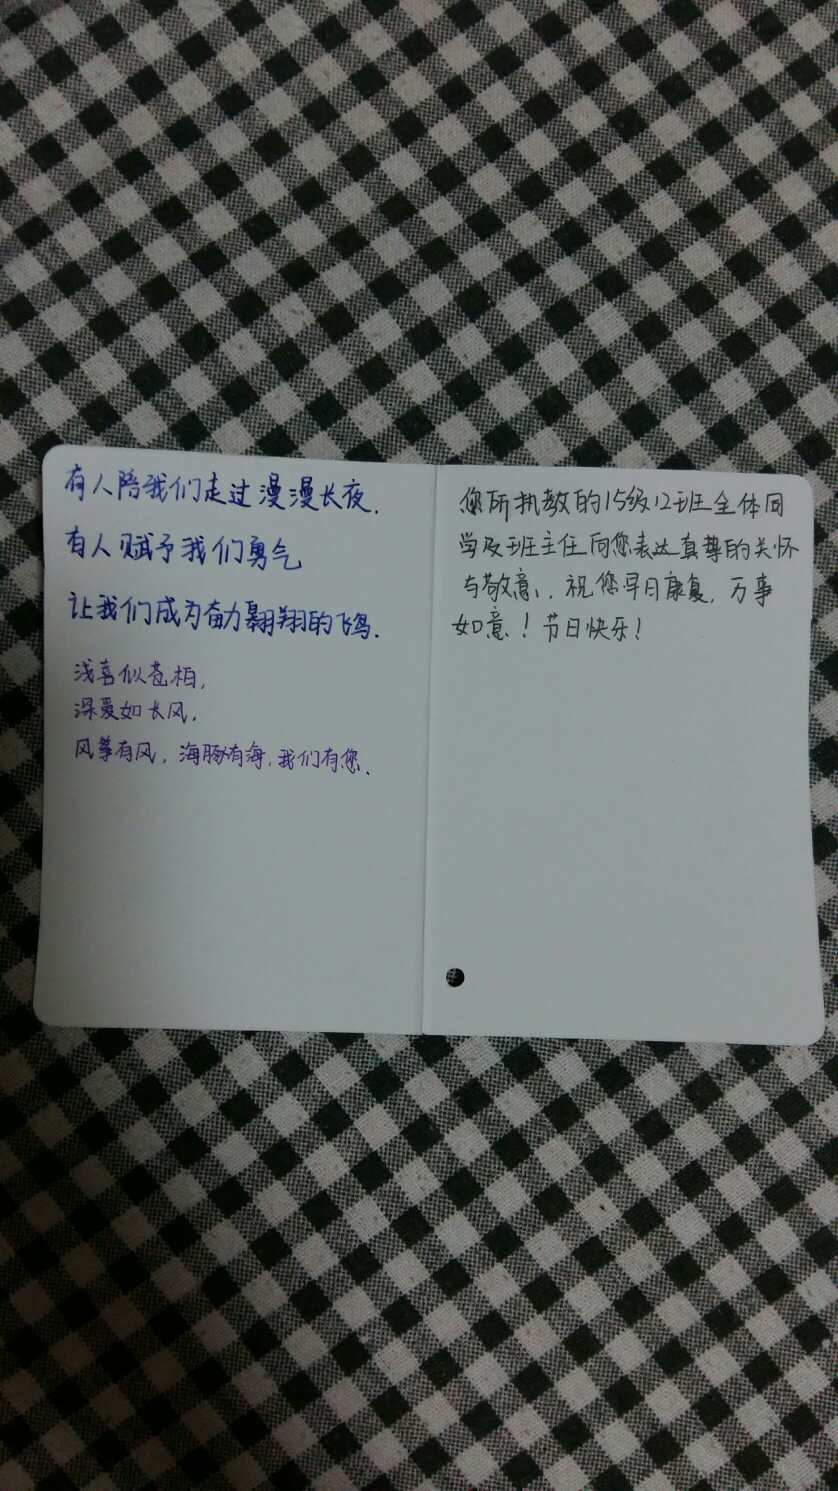 有人陪我们走过漫漫长夜.
有人赋予我们勇气
让我们成为奋力翱翔的飞鸟.
浅喜似苍柏,
深爱如长风,
风筝有风, 海豚有海, 我们有您.
您所执教的15级12班全体同
学及班主任向您表达真挚的关怀
与敬意, 祝您早日康复, 万事
如意! 节日快乐!